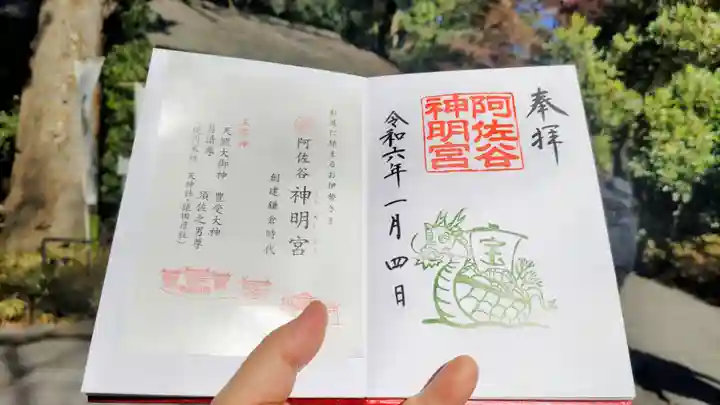 奉拝
阿佐谷
神明宮
宝
令和六年一月四日
お庭に鎮まるお伊勢さま
阿佐谷 神明宮
創建鎌倉時代
主祭神
天照大御神 豊受大神
月読尊 須佐之男尊